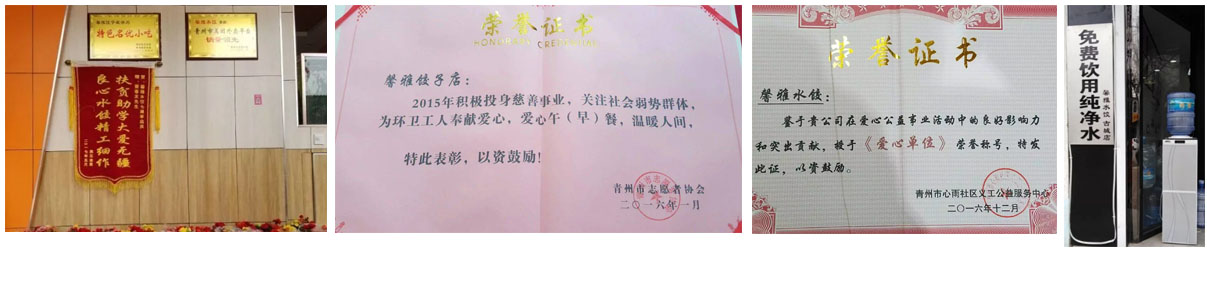 特色名优小吃
扶贫助学大爱无疆
良心水饺精工细作
荣誉证书
HONORARY CREDENTIAL
馨雅饺子店：
2015年积极投身慈善事业，关注社会弱势群体，
为环卫工人奉献爱心，爱心午（早）餐，温暖人间，
特此表彰，以资鼓励！
青州市志愿者协会
二〇一六年一月
荣誉证书
馨雅水饺：
鉴于贵公司在爱心公益事业活动中的良好影响力
和突出贡献，授于《爱心单位》荣誉称号，特发
此证，以资鼓励。
青州市心雨社区义工公益服务中心
二〇一六年十二月
免费饮用纯净水
馨雅水饺古城店